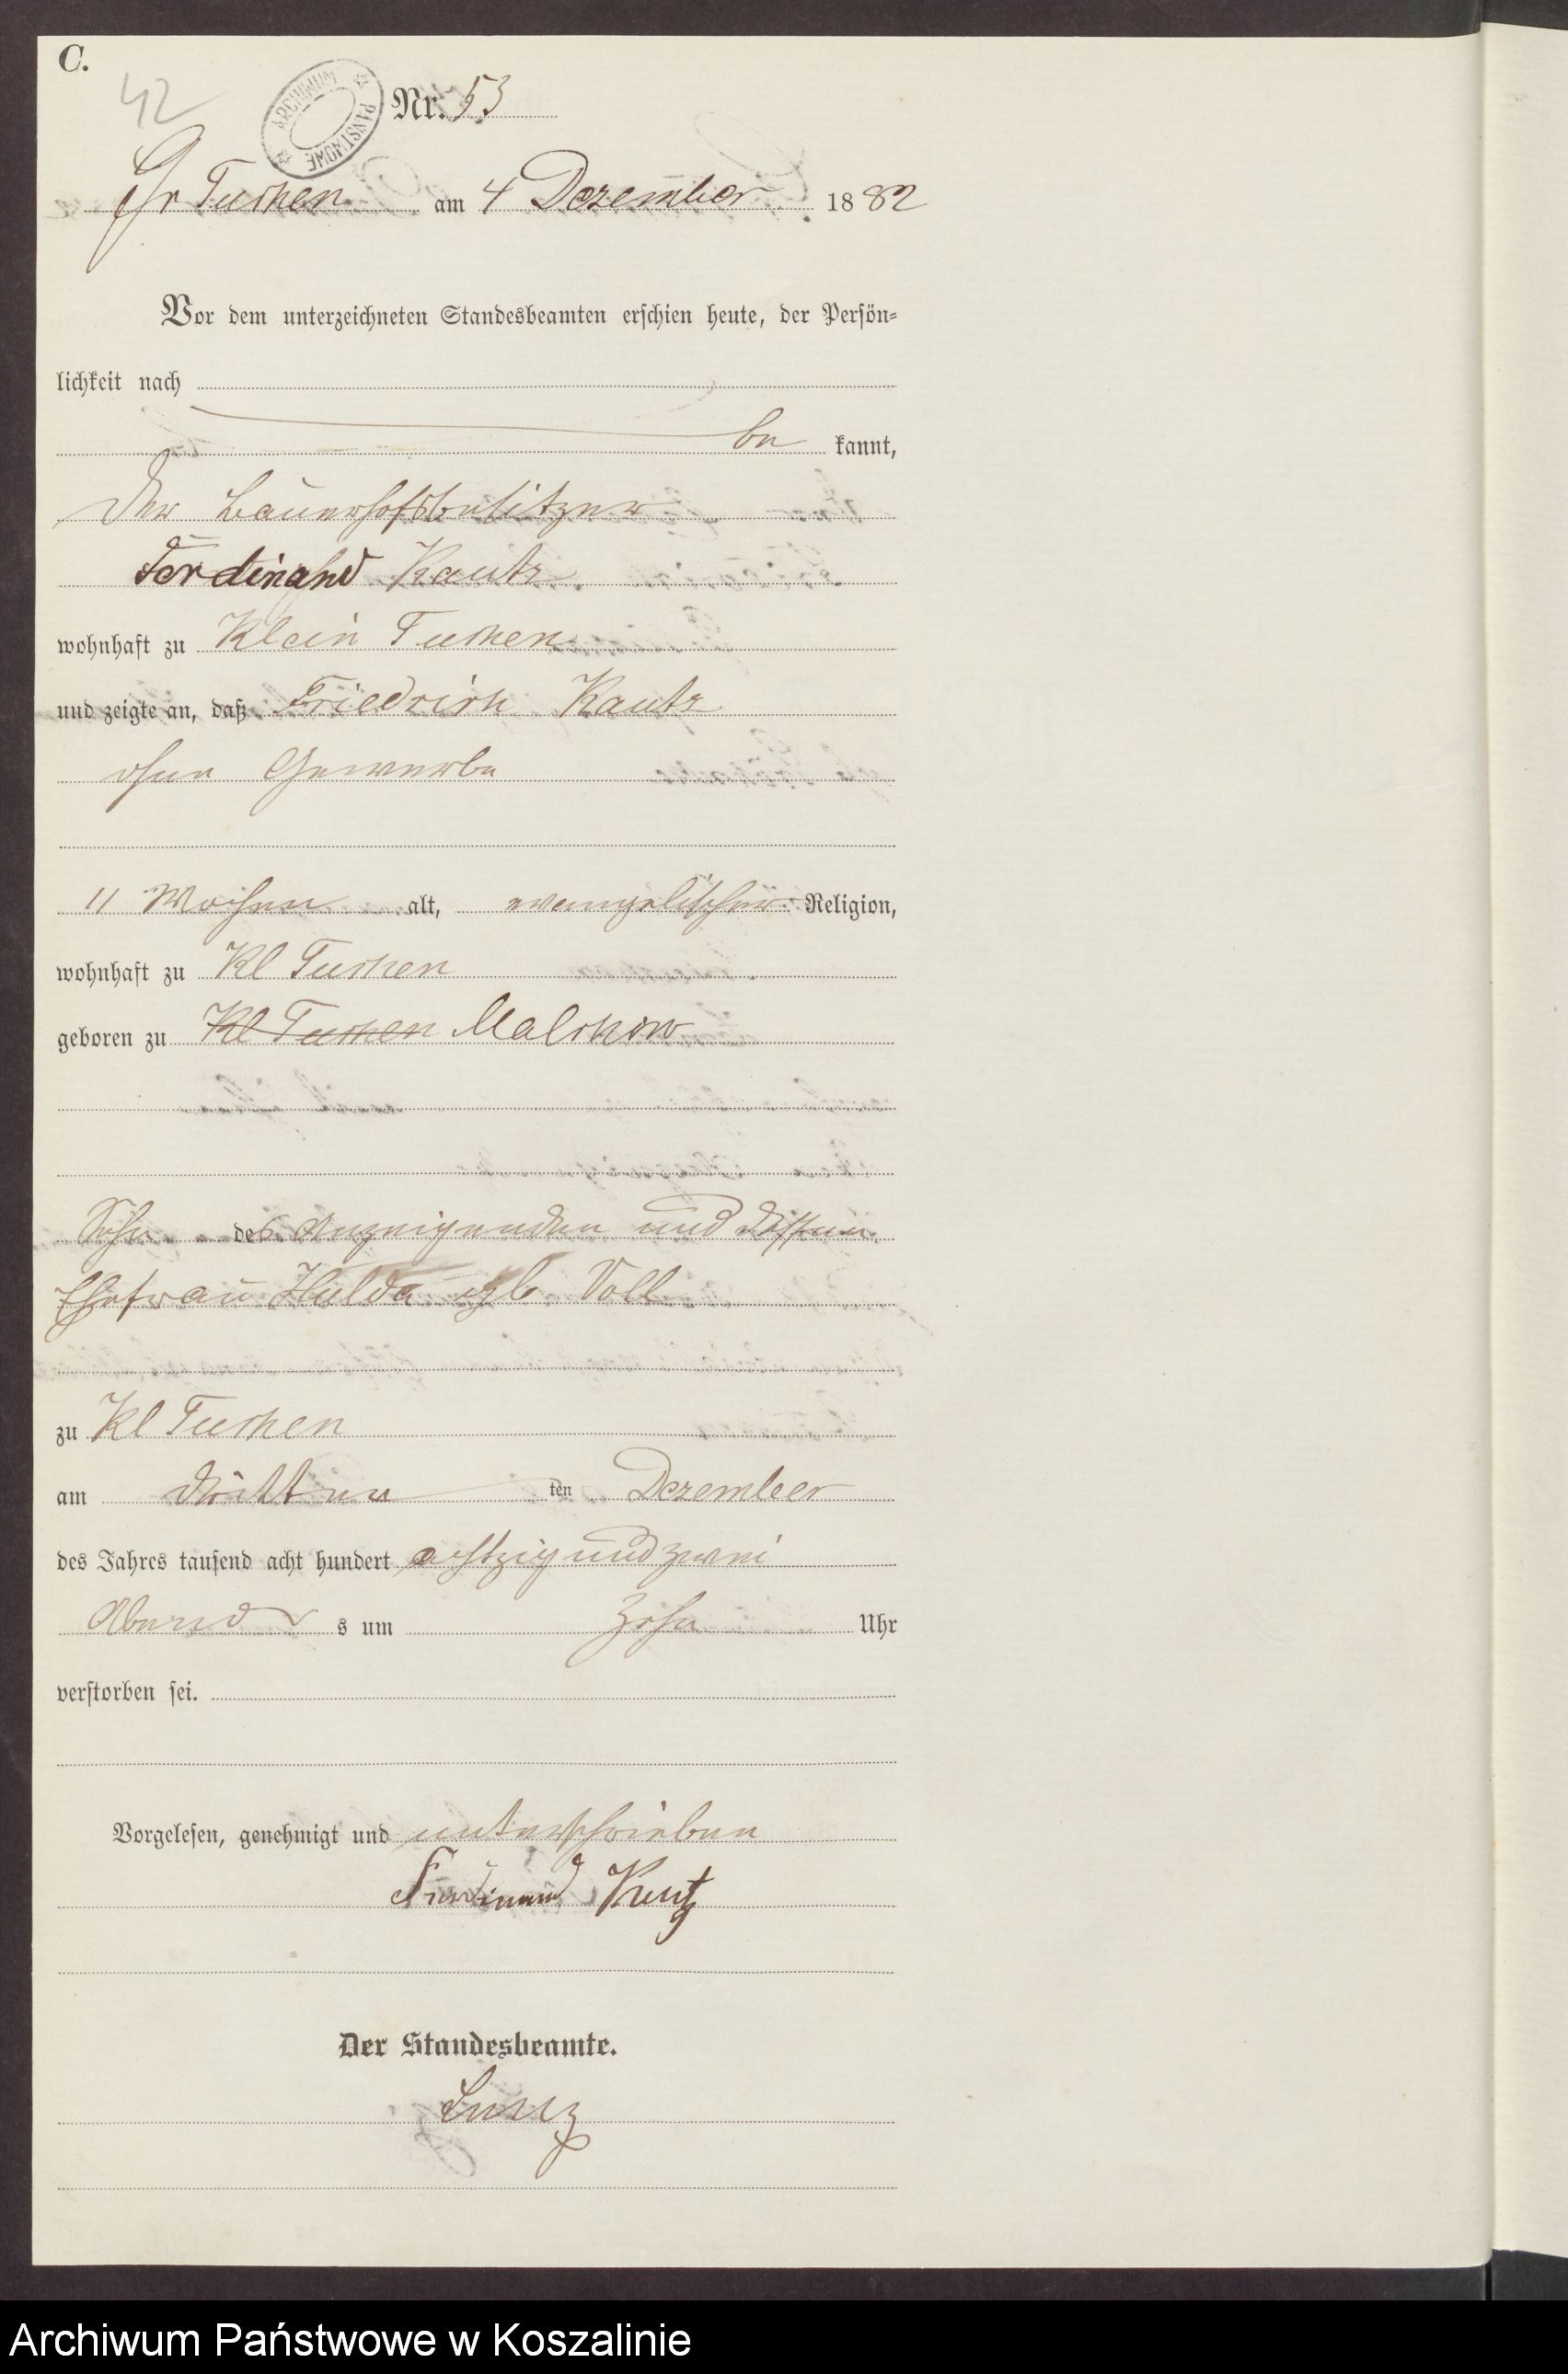 C.
42
ARCHIWUM PAŃSTWOWE
Nr. 53
Gr Tuchen am 4 Dezember 1882
Vor dem unterzeichneten Standesbeamten erschien heute, der Persön-
lichkeit nach
be kannt,
der Bauerhofsbesitzer
Ferdinand Kautz
wohnhaft zu Klein Tuchen
und zeigte an, daß Friedrich Kautz
ohne Gewerbe
11 Wochen alt, evangelischer Religion,
wohnhaft zu Kl Tuchen
geboren zu Kl Tuchen Malchow
Sohn des Anzeigenden und dessen
Ehefrau Hulda geb Voll
zu Kl Tuchen
am dritten ten Dezember
des Jahres tausend acht hundert achtzig und zwei
Abend s um Uhr
verstorben sei.
Vorgelesen, genehmigt und unterschrieben
Ferdinand Kautz
Der Standesbeamte.
Archiwum Państwowe w Koszalinie